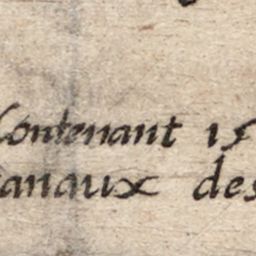 Contenant 15
canaux des